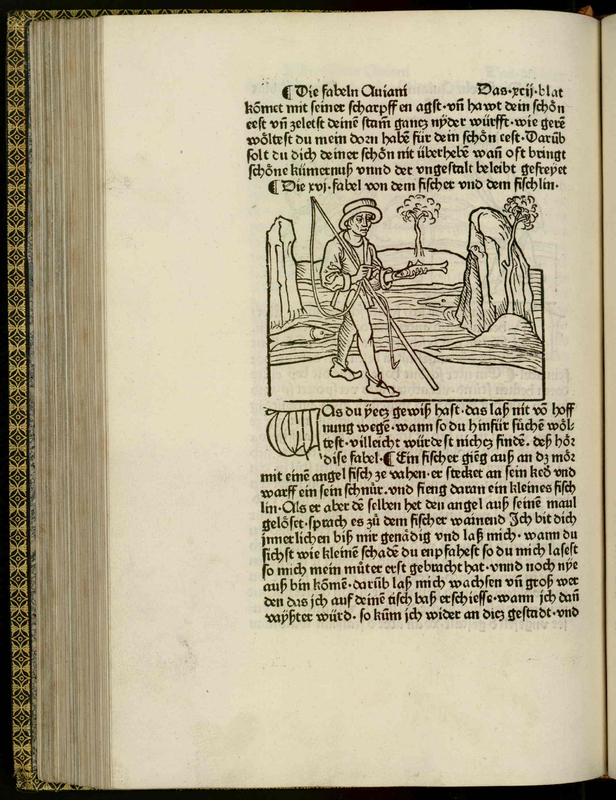 ¶ Die fabeln Auiani Das·xcij·blat
kom̃et mit seiner scharpffen agst·vñ hawt dein schön
eest vñ zeletst deinē stam̃ gancz nyder würfft·wie gerē
wöltest du mein dorn habē für dein schön eest·Darūb
solt du dich deiner schön nit überhebē wañ offt bringt
schöne kümernuß vnnd der vngestalt beleibt gefreyet
¶ Die xvj·fabel von dem fischer vnd dem fischlin·
WAs du yecz gewiß hast·das laß nit võ hoff
nung wegē·wann so du hinfür sůchē wöl⸗
test·villeicht würdest nichcz findē·deß hör
dise fabel·¶ Ein fischer gieng auß an dz mör
mit einē angel fisch ze vahen·er stecket an sein keð vnd
warff ein sein schnůr·vnd fieng daran ein kleines fisch
lin·Als er aber dē selben het den angel auß seinē maul
gelöset·sprach es zů dem fischer wainend Ich bit dich
jnnerlichen biß mir genädig vnd laß mich·wann du
sichst wie kleinē schadē du enpfahest so du mich lasest
so mich mein můter erst gebracht hat·vnnd noch nye
auß bin kömē·darūb laß mich wachsen vñ groß wer
den das jch auf deinē tisch baß erschiesse·wann jch dañ
vayßter würd·so kum̃ jch wider an dicz gestadt·vnd